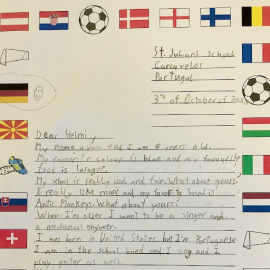 St. Julians School
Carcavelos
Portugal
3rd of October of 20
Dear Helmi,
My name is and I am 8 years old.
My favorite colour is blue and my favourite
food is lasagne.
My school is really cool and fun. What about yours?
I really like music and my favorite band is
Artic Monkeys. What about yours?
When I'm older I want to be a singer and
a mechanical engineer.
I was born in United States but I'm Portuguese
I am in the school band and I sing and I
play guitar as well.